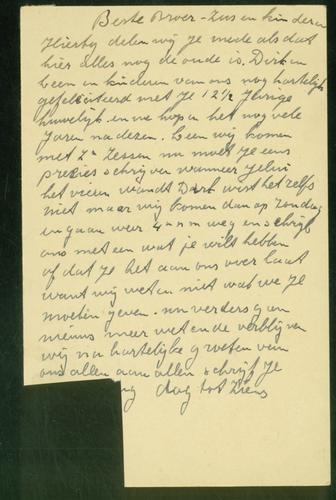 Beste Broer - Zus en kinderen
Hierby delen wij Je mede als dat
hier alles nog de oude is. Dirk en
Leen en kinderen van ons nog hartelijk
gefeliciteerd met Je 12½ Jarige
huwelijk. en we hopen het nog vele
Jaren na dezen. Leen wij komen
met z'n Zessen nu moet Je eens
precies schrijven wanneer Jelui
het vieren wandt Dirk wist het zelfs
niet maar wij komen dan op Zondag
en gaan weer weg en schrijf
ons met een wat Je wilt hebben
of dat Je het aan ons over laat
want wij weten niet wat we Je
moeten geven. nu verders geen
nieuws meer wetende verblijven
wij na hartelijke groeten van
ons allen aan allen schrijf Je
dag tot Ziens